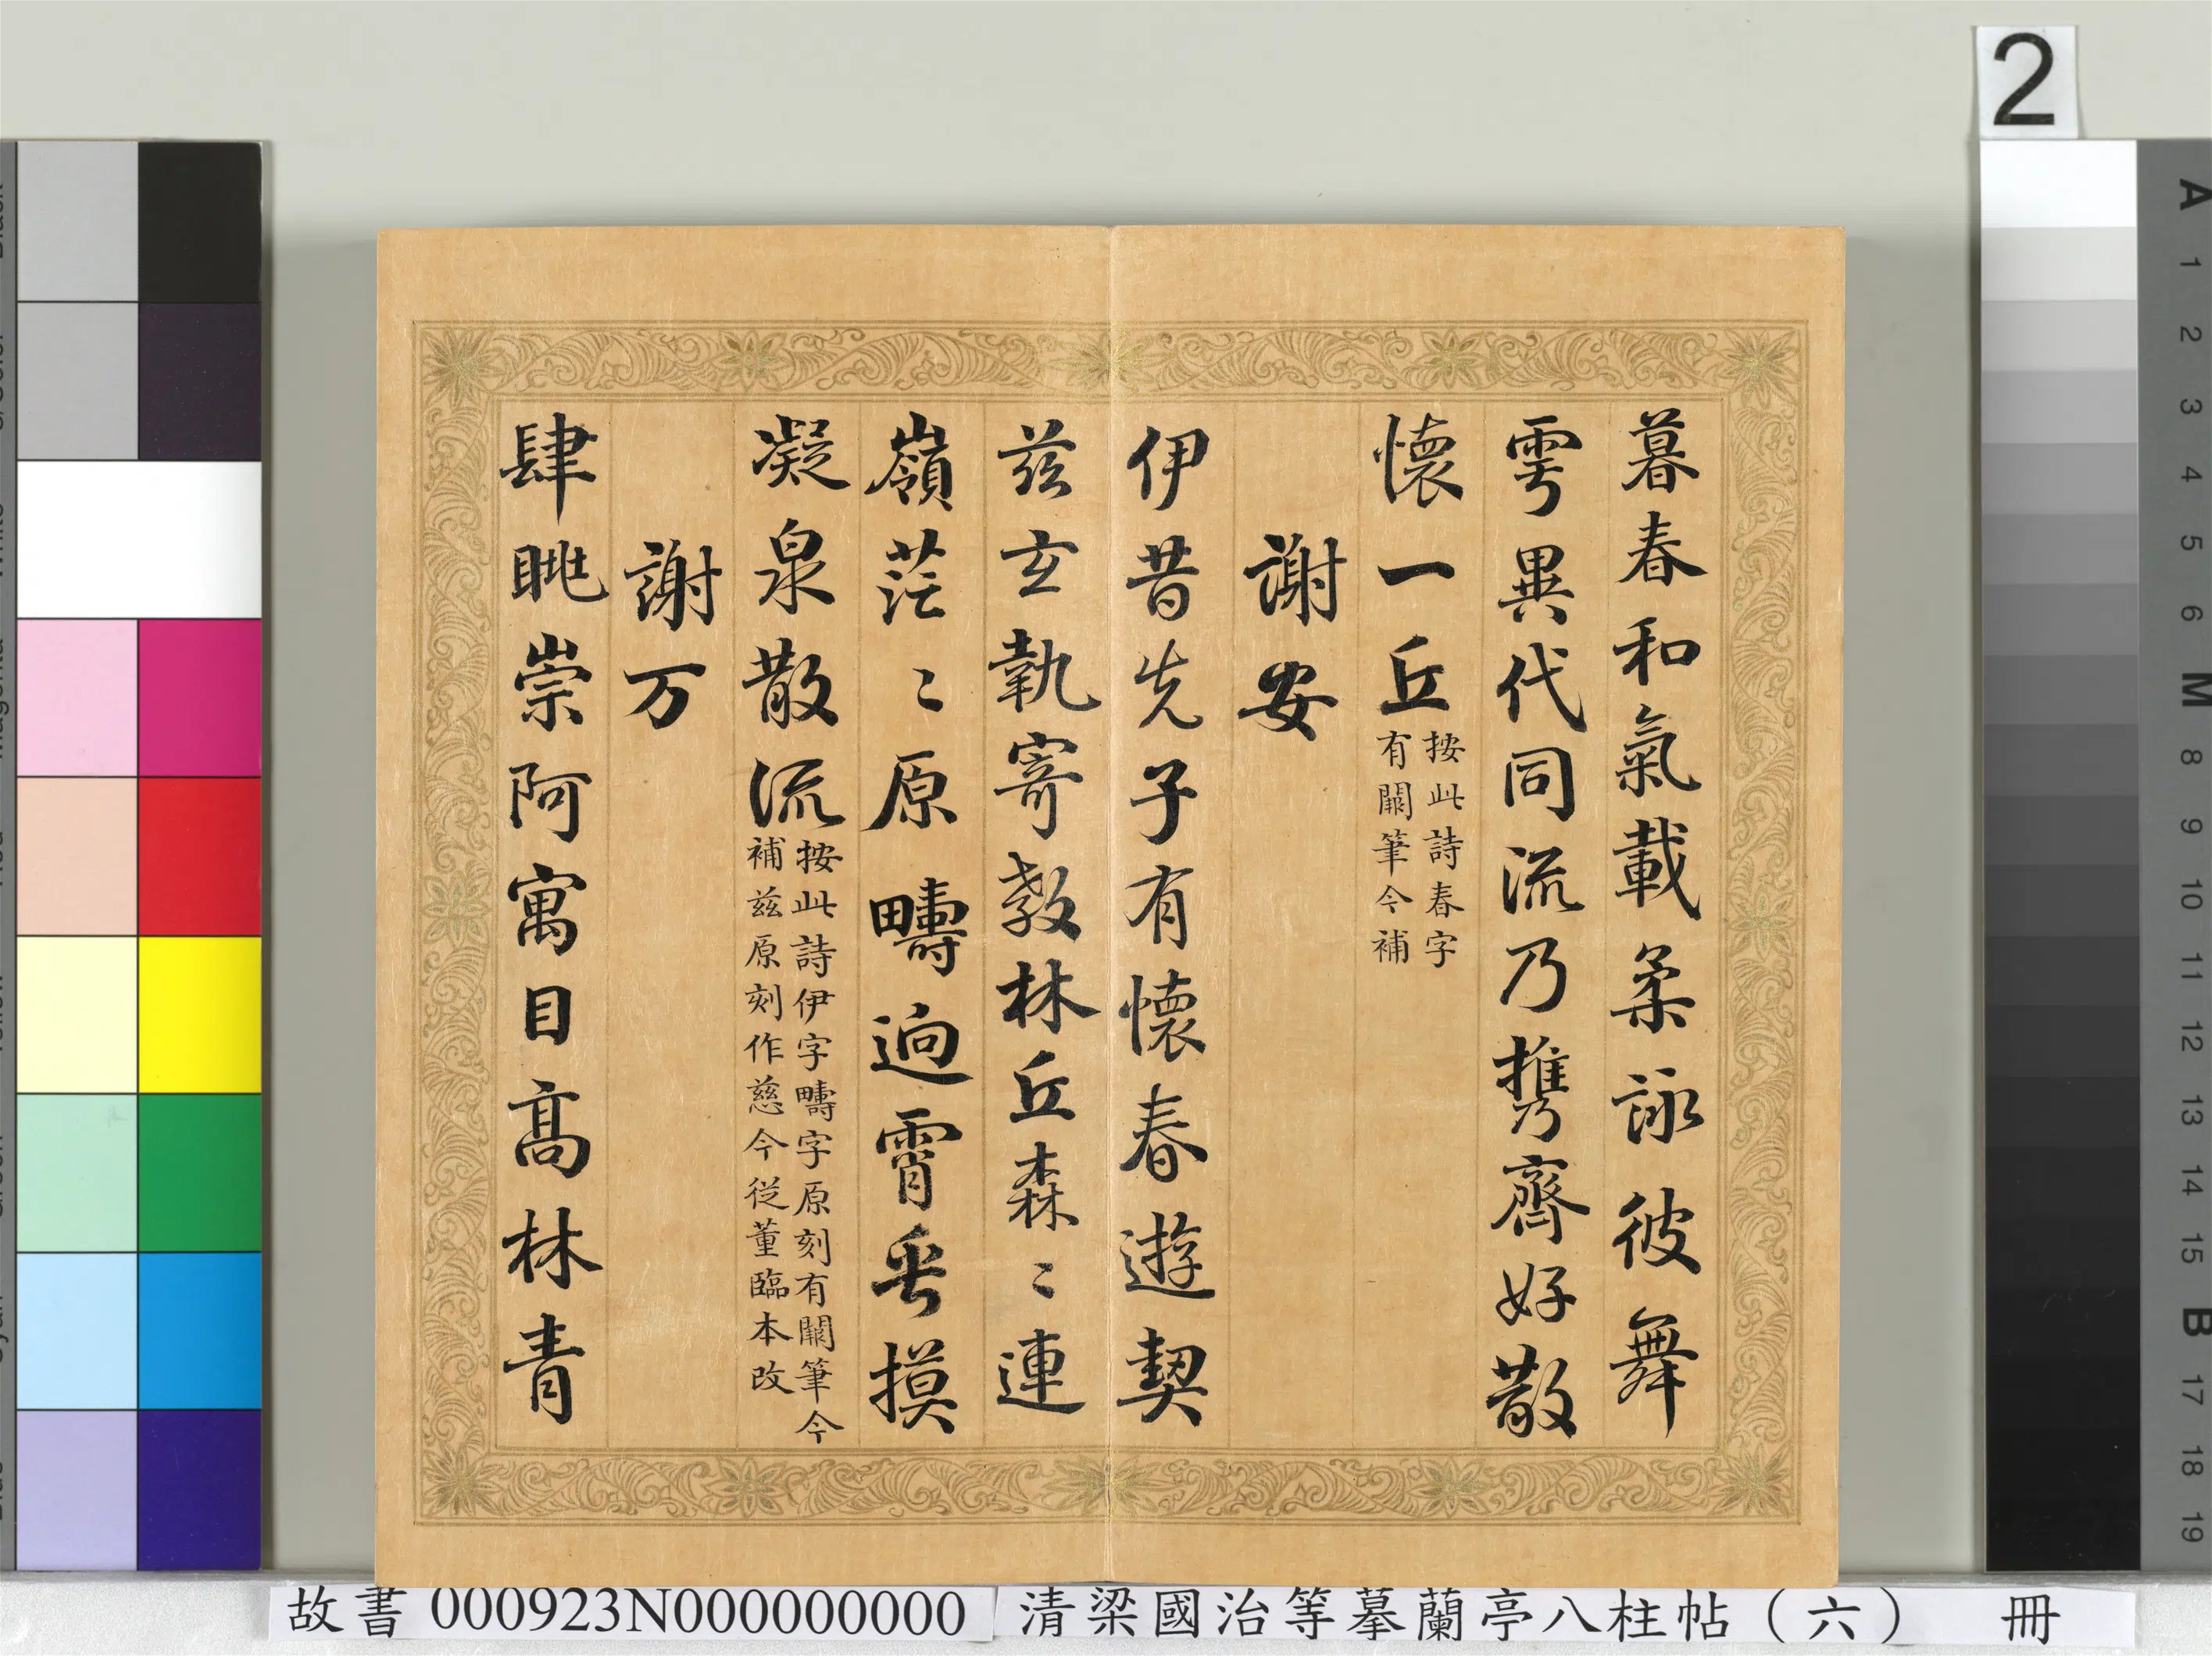 暮春和氣載柔詠彼舞
雩異代同流乃攜齊好散
懷一丘
按此詩春字
有闕筆今補
謝安
伊昔先子有懷春遊契
茲玄執寄敖林丘森〻連
嶺茫〻原疇逈霄垂摸
凝泉散流
按此詩伊字疇字原刻有闕筆今
補茲原刻作慈今從董臨本改
謝万
肆眺崇阿寓目高林青
2
A
1
2
3
4
5
6
M
8
9
10
11
12
13
14
15
B
17
18
19
故書 000923N000000000
清梁國治等摹蘭亭八柱帖（六） 冊